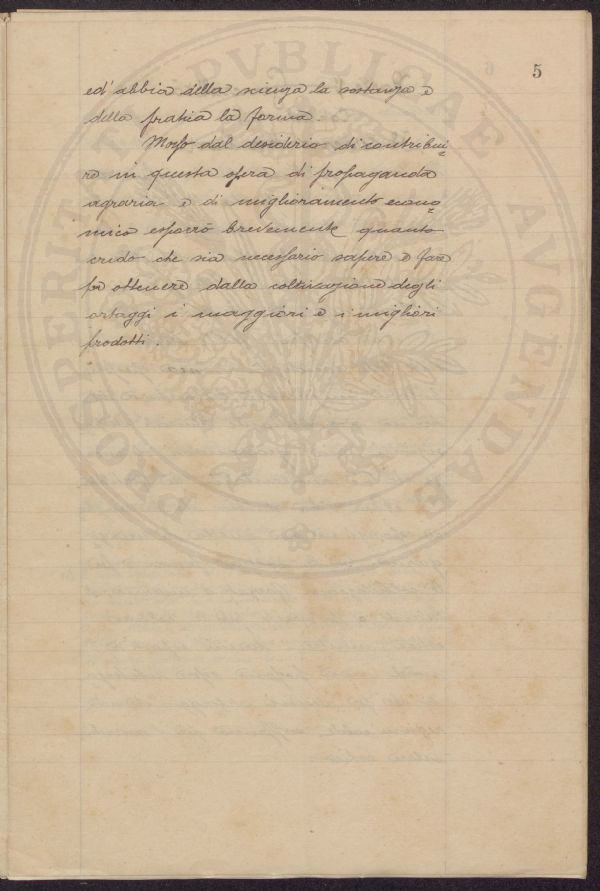 5
ed' abbia della scienza la sostanza e
della pratica la forma.
Mosso dal desiderio di contribui-
re in questa opera di propaganda
agraria e di miglioramento econo-
mico esporrò brevemente quanto
credo che sia necessario sapere e fare
per ottenere dalla coltivazione degli
ortaggi i maggiori e i migliori
prodotti.
PROSPERITATI PVBLICAE AVGENDAE